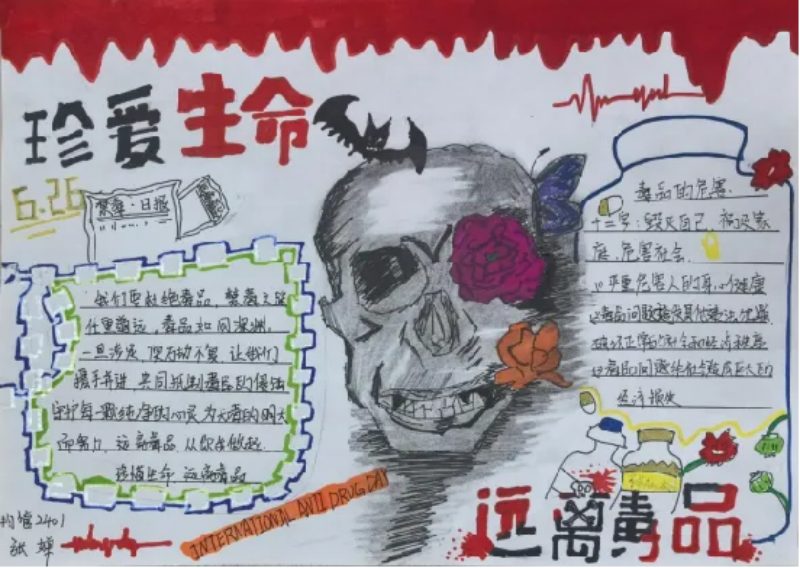 珍爱生命
6.26
禁毒·日报
我们要杜绝毒品,禁毒之路
任重道远,毒品如同深渊,
一旦涉足,便万劫不复,让我们
携手并进,共同抵制毒品的侵蚀
守护每一颗纯净的心灵,为无毒的明天
而努力,远离毒品,从你我做起.
珍惜生命,远离毒品
毒品的危害.
十二字:毁灭自己,祸及家
庭,危害社会.
严重危害人的身心健康
毒品问题
破坏正常的社会和经济秩序
毒品问题给社会造成巨大的
经济损失
INTERNATIONAL ANTI DRUG DAY
2401
远离毒品